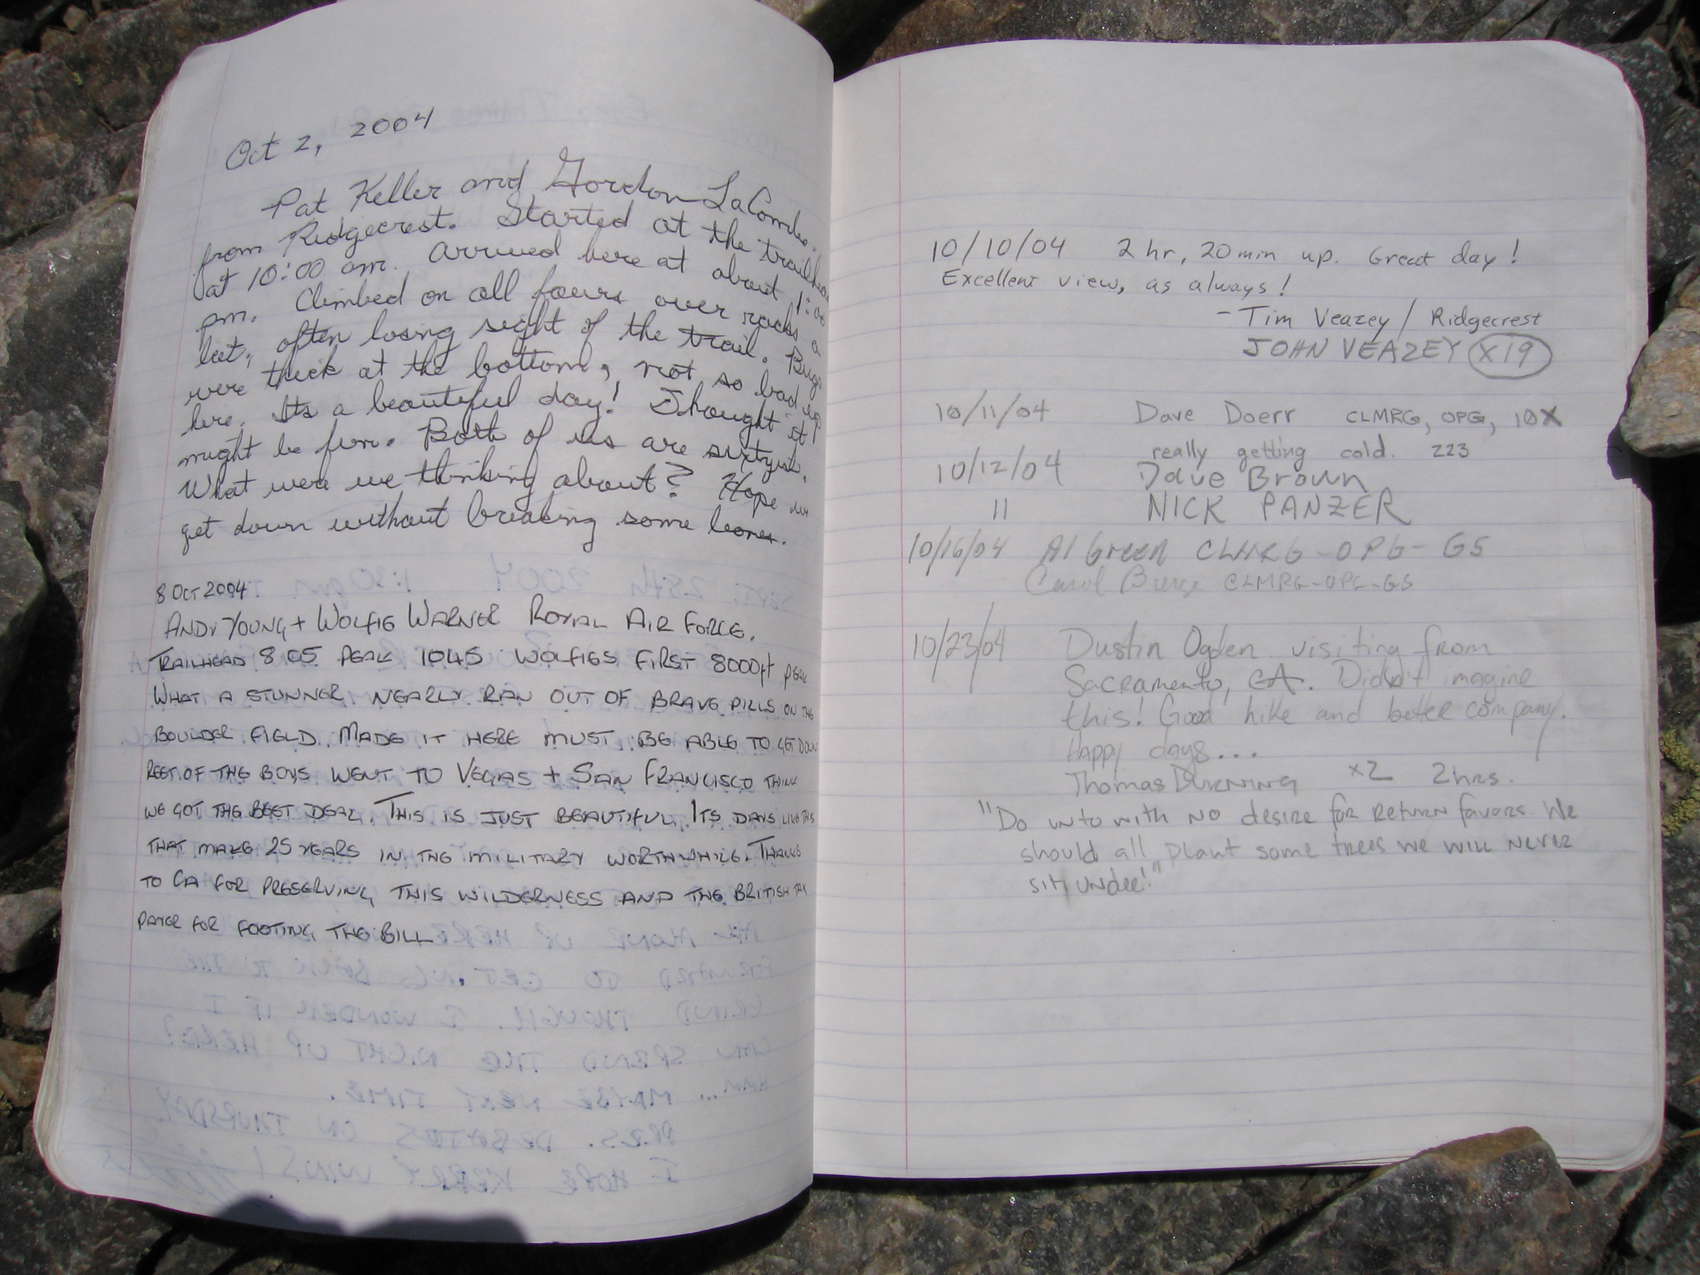 Oct 2, 2004
Pat Keller and Gordon LaCombe
from Ridgecrest. Started at the
at 10:00 am. arrived here at about 1:00
pm. Climbed on all fours over rocks
often losing sight of the trail. Bugs
were thick at the bottom, not so bad up
here. Its a beautiful day! Thought it
might be fun. Both of us are
What were we thinking about? Hope we
get down without breaking some bones.
8 OCT 2004
ANDY YOUNG + WOLFIE WARNER ROYAL AIR FORCE.
TRAILHEAD 8.05 PEAK 1045 WOLFIES FIRST 8000ft PEAK
WHAT A STUNNER NEARLY RAN OUT OF BRAVE PILLS ON THE
BOULDER FIELD. MADE IT HERE MUST BE ABLE TO GET DOWN
REST OF THE BOYS WENT TO VEGAS + SAN FRANCISCO THINK
WE GOT THE BEST DEAL. THIS IS JUST BEAUTIFUL. ITS DAYS LIKE THIS
THAT MAKE 25 YEARS IN THE MILITARY WORTHWHILE. THANKS
TO CA FOR PRESERVING THIS WILDERNESS AND THE BRITISH TAX
PAYER FOR FOOTING THE BILL
10/10/04 2 hr, 20 min up. Great day!
Excellent view, as always!
- Tim Veazey / Ridgecrest
JOHN VEAZEY X19
10/11/04 Dave Doerr CLMRG, OPG, 10X
really getting cold. 223
10/12/04 Dave Brown
11 NICK PANZER
10/16/04 Al Green CLMRG-OPG-GS
Carol CLMRG-OPG-GS
10/23/04 Dustin Ogden visiting from
Sacramento, CA. Didn't imagine
this! Good hike and better company.
Happy days...
Thomas DURNING x2 2hrs.
"Do unto with no desire for return favors We
should all plant some trees we will never
sit under!"